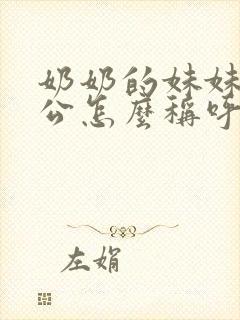 奶奶的妹妹
公怎麼稱呼
左娟